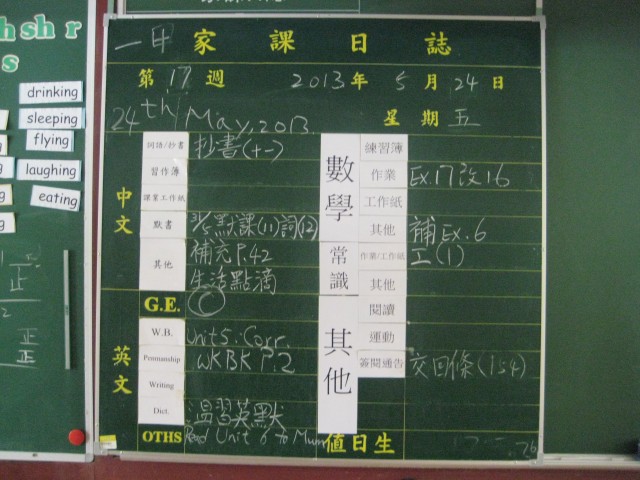 hsh r
s
drinking
sleeping
flying
laughing
eating
正
正
正
一甲 家課日誌
第 17 週 2013 年 5 月 24 日
24th May, 2013. 星期 五
中文
詞語/抄書 抄書(十一)
習作簿
課業工作紙
默書 31/5 默課(11)詞(12)
其他 補充 P.42
生活點滴
G.E. C
英文
W.B. Unit 5: Corr.
Penmanship WKBK P.2
Writing
Dict. 溫習英默
OTHS Read Unit 6 to Mum
數學
練習簿
作業 Ex.17改16
工作紙
其他 補Ex.6
常識
作業/工作紙 工(1)
其他
其他
閱讀
運動
簽閱通告 交回條(154)
值日生